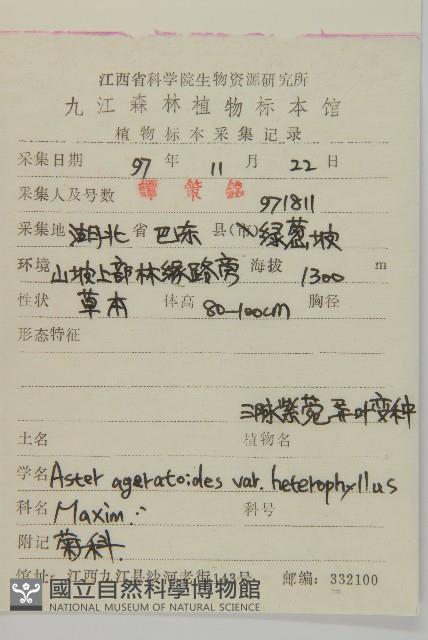 江西省科学院生物资源研究所
九江森林植物标本馆
植物标本采集记录
采集日期 97 年 11 月 22 日
采集人及号数 譚策銘 971811
采集地 湖北 省 巴东 县(市) 绿葱坡
环境 山坡上部林缘路旁 海拔 1300 m
性状 草本 体高 80-100cm 胸径
形态特征
三脉紫菀异叶变种
土名 植物名
学名 Aster ageratoides var. heterophyllus
科名 Maxim. 科号
附记 菊科
馆址: 江西九江县沙河老街143号 邮编: 332100
國立自然科學博物館
NATIONAL MUSEUM OF NATURAL SCIENCE